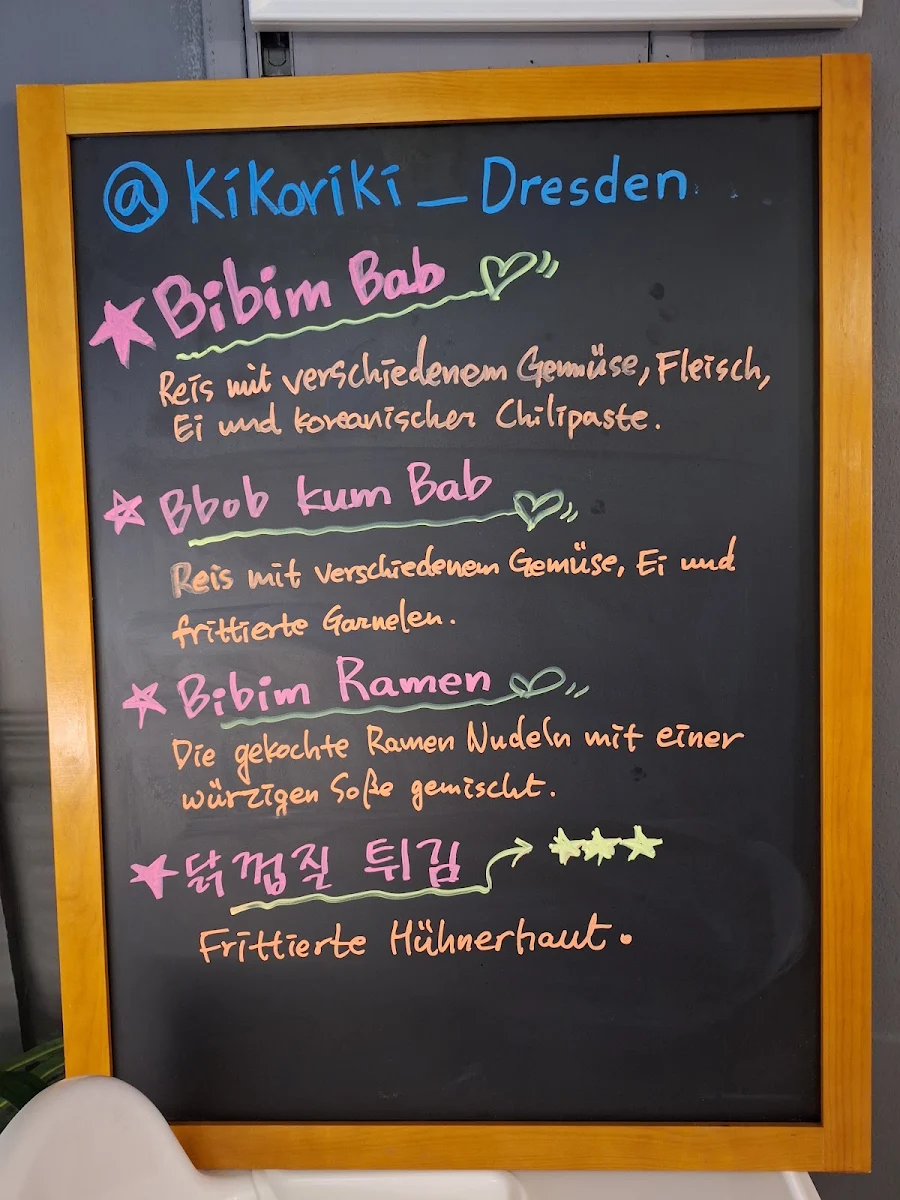 @Kikoriki_Dresden
Bibim Bab
Reis mit verschiedenem Gemüse, Fleisch,
Ei und koreanischer Chilipaste.
Bbob kum Bab
Reis mit verschiedenem Gemüse, Ei und
frittierte Garnelen.
Bibim Ramen
Die gekochte Ramen Nudeln mit einer
würzigen Soße gemischt.
닭껍질 튀김
Frittierte Hühnerhaut.